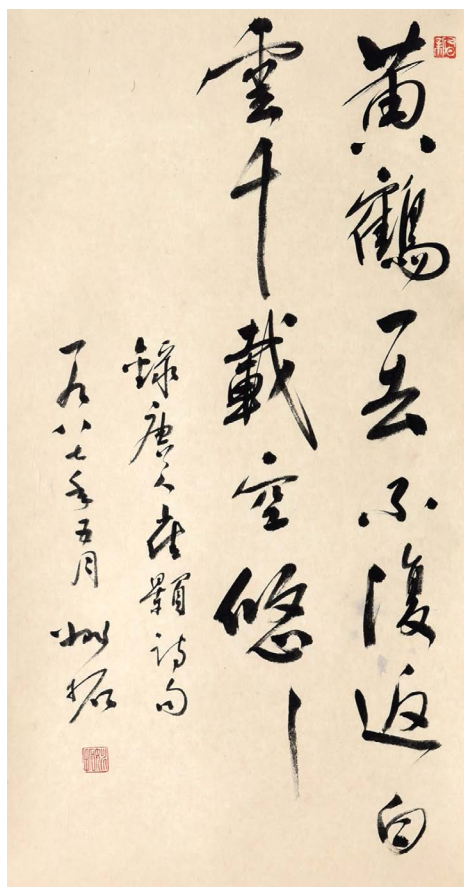 黄鶴一去不復返白
雲千載空悠〻
録唐人崔顥詩句
一九八七年五月 姚拓